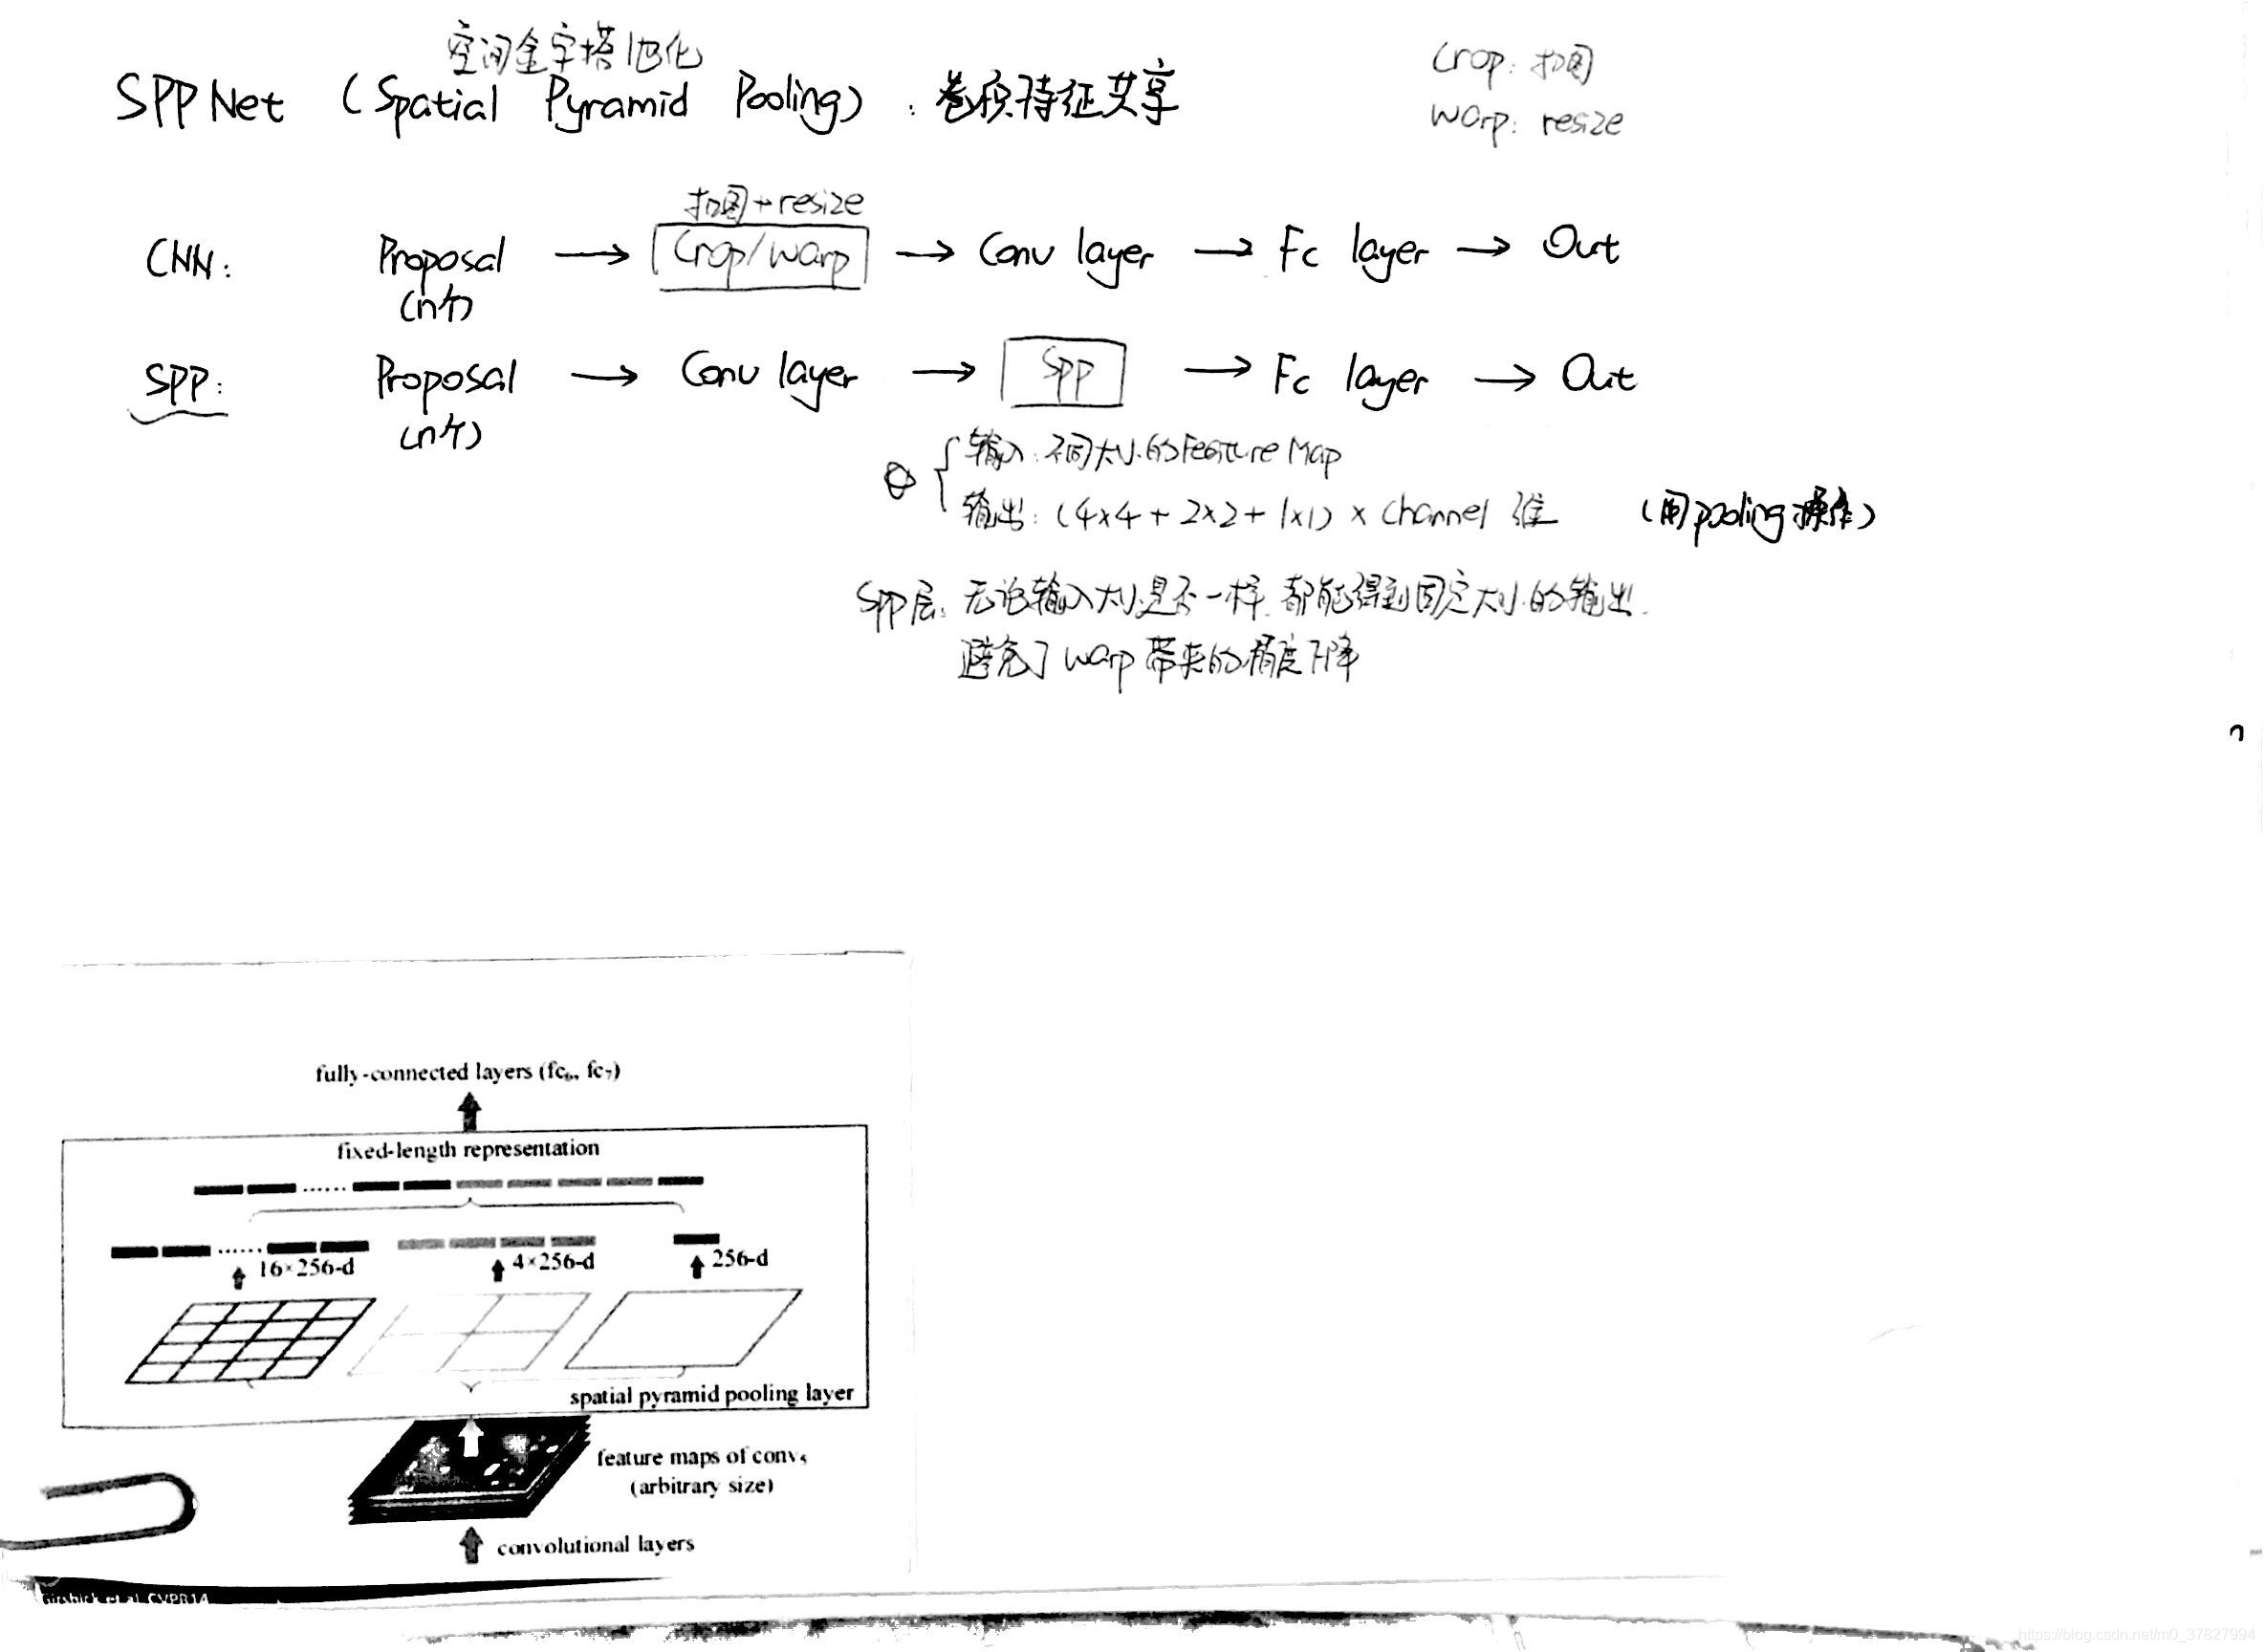 空间金字塔池化
SPP Net (Spatial Pyramid Pooling): 卷积特征共享
Crop: 扣图
warp: resize
扣图+resize
CNN: Proposal → Crop/warp → Conv layer → Fc layer → Out
(n个)
SPP: Proposal → Conv layer → SPP → Fc layer → Out
(n个)
输入: 不同大小的Feature Map
输出: (4×4 + 2×2 + 1×1) × Channel 维 (用pooling操作)
SPP层: 无论输入大小是否一样, 都能得到固定大小的输出.
避免了 warp 带来的精度下降
fully-connected layers (fc₆, fc₇)
fixed-length representation
16×256-d
4×256-d
256-d
spatial pyramid pooling layer
feature maps of conv₅
(arbitrary size)
convolutional layers
https://blog.csdn.net/m0_37827994